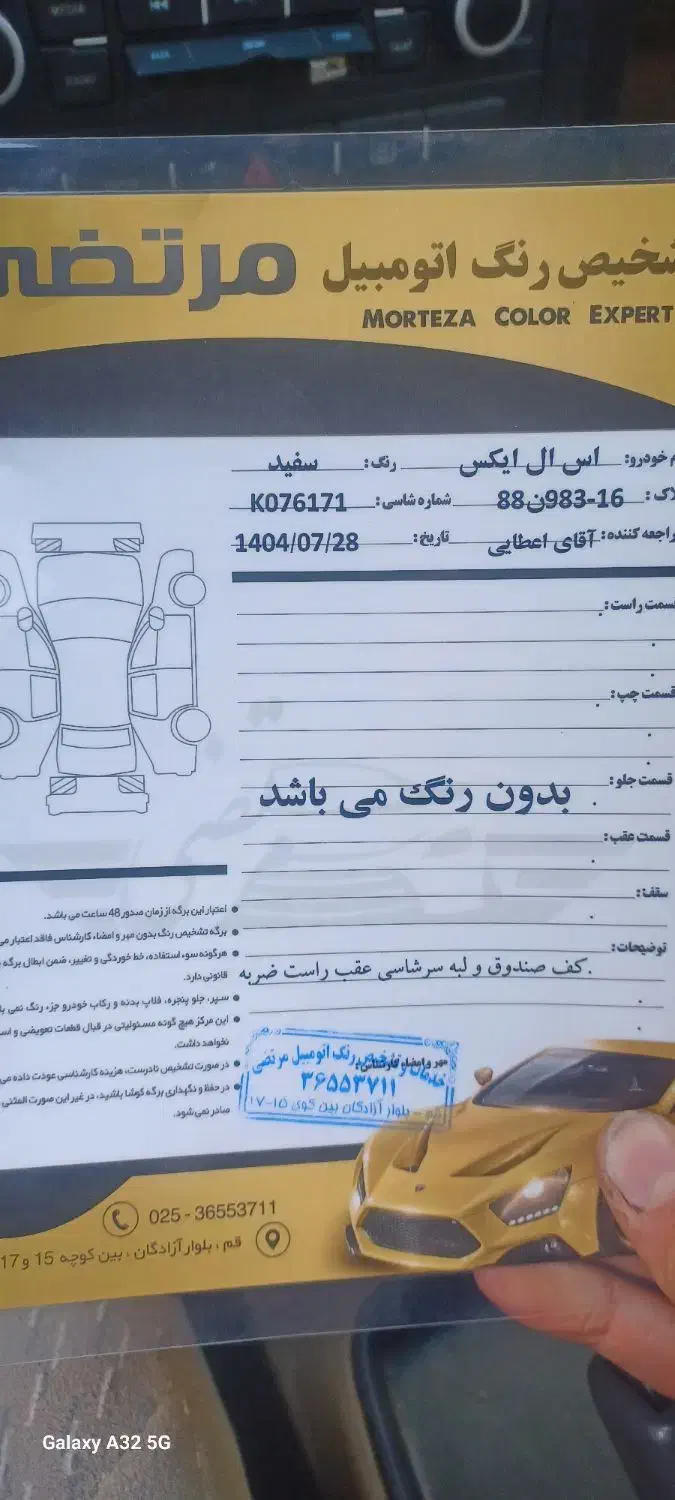 تشخیص رنگ اتومبیل مرتضی
MORTEZA COLOR EXPERT
خودرو: اس ال ایکس رنگ: سفید
پلاک: 88ن983-16 شماره شاسی: K076171
مراجعه کننده: آقای اعطایی تاریخ: 1404/07/28
قسمت راست:
قسمت چپ:
قسمت جلو:
بدون رنگ می باشد
قسمت عقب:
سقف:
توضیحات:
کف صندوق و لبه سرشاسی عقب راست ضربه.
اعتبار این برگه از زمان صدور 48 ساعت می باشد.
برگه تشخیص رنگ بدون مهر و امضاء کارشناس فاقد اعتبار می
هرگونه سوء استفاده، خط خوردگی و تغییر، ضمن ابطال برگه
قانونی دارد.
سپر، جلو پنجره، فلاپ بدنه و رکاب خودرو جزء رنگ نمی
این مرکز هیچ گونه مسئولیتی در قبال قطعات تعویضی و
نخواهد داشت.
در صورت تشخیص نادرست، هزینه کارشناسی عودت داده می
در حفظ و نگهداری برگه کوشا باشید، در غیر این صورت المثنی
صادر نمی شود.
مهر و امضاء کارشناس:
خدمات تشخیص رنگ اتومبیل مرتضی
۳۶۵۵۳۷۱۱
قم - بلوار آزادگان بین کوی ۱۵-۱۷
025 - 36553711
قم ، بلوار آزادگان ، بین کوچه 15 و 17
Galaxy A32 5G